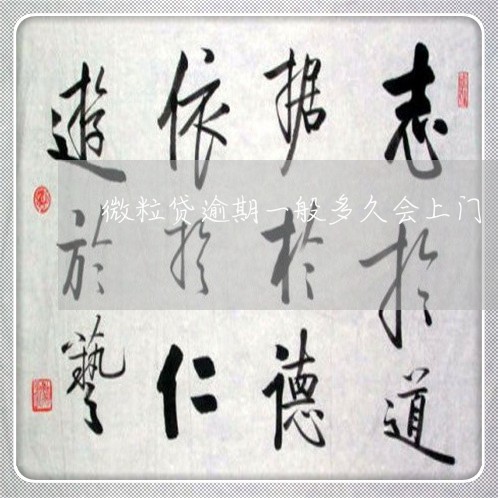 志於道
据於德
依於仁
遊於藝
微粒贷逾期一般多久会上门